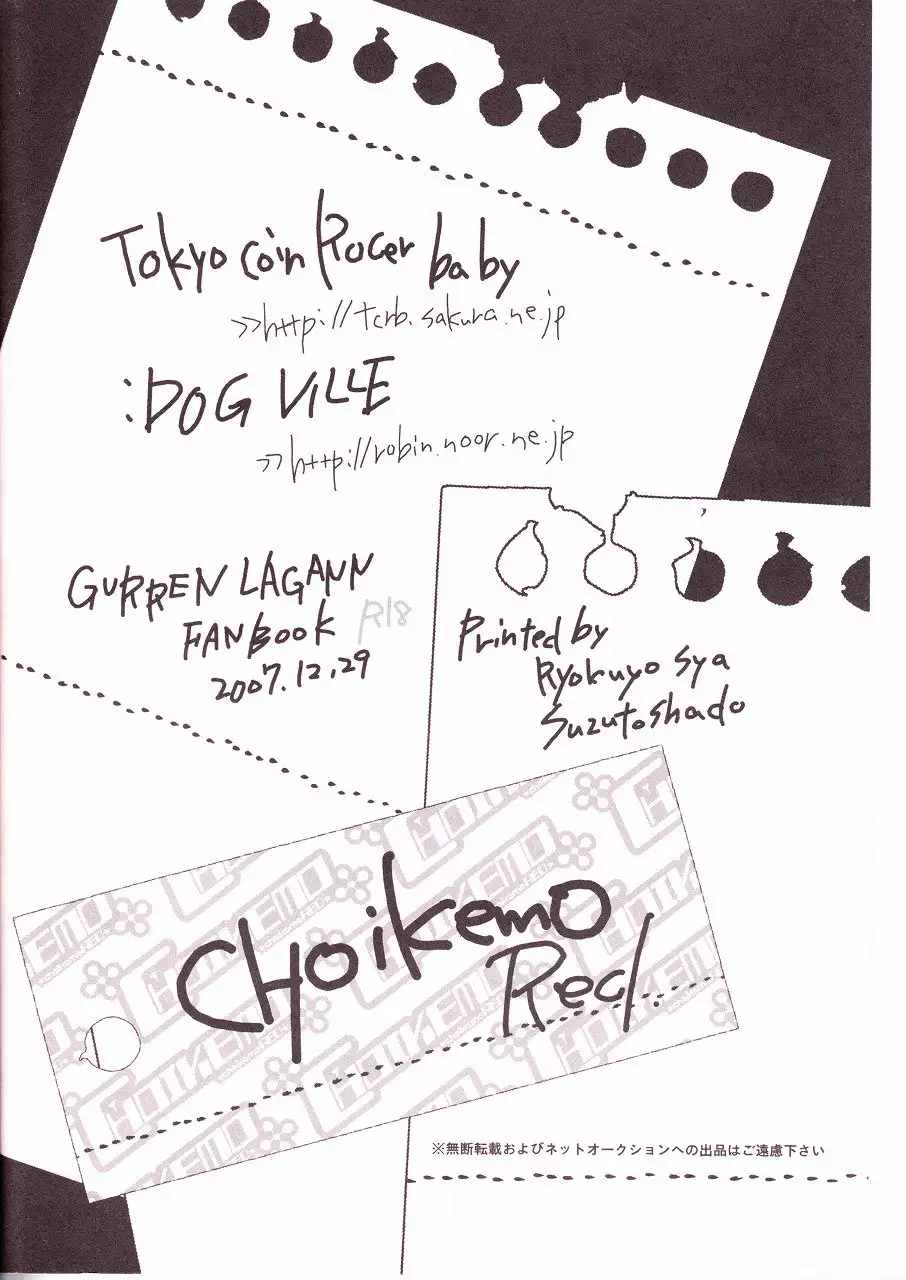 Tokyo coin Rocer baby
>>http://tcrb.sakura.ne.jp
:DOG VILLE
>>http://robin.noor.ne.jp
GURREN LAGANN
FANBOOK R18
2007.12.29
Printed by
Ryokuyo sya
Suzutoshado
CHOIKEMO
CHoikemo
Red.
※無断転載およびネットオークションへの出品はご遠慮下さい